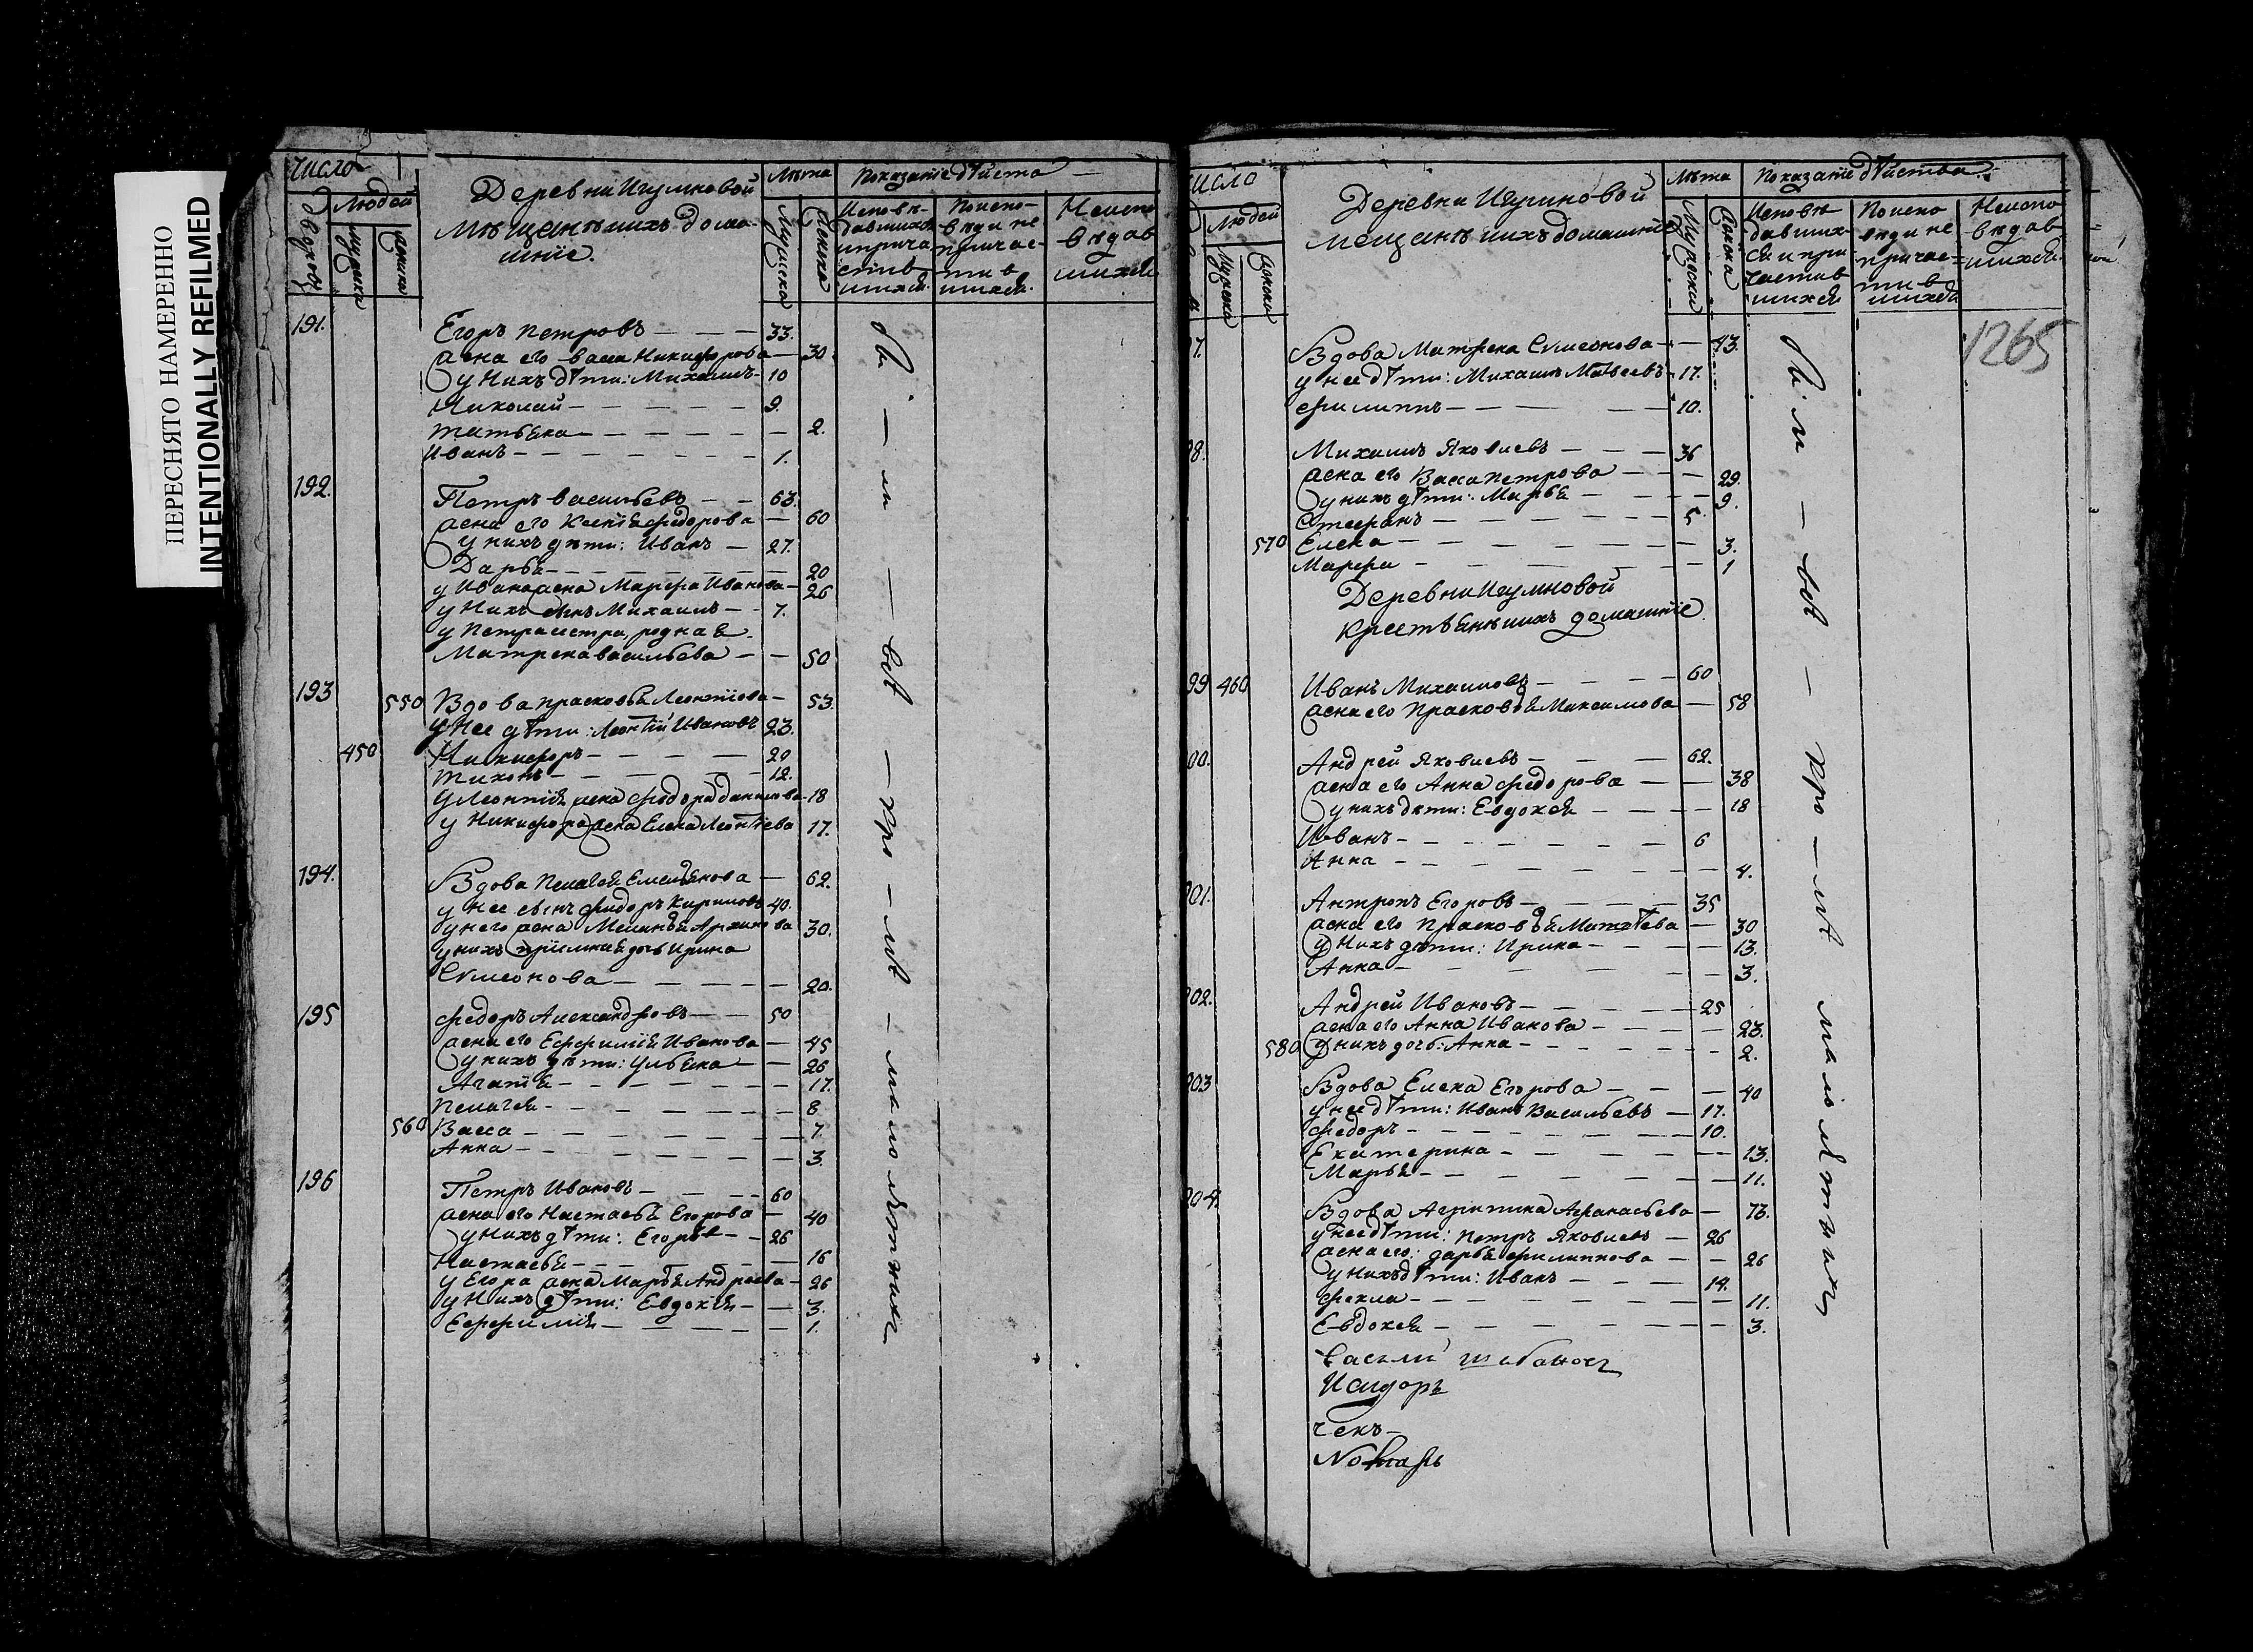 ПЕРЕСНЯТО НАМЕРЕННО
INTENTIONALLY REFILMED
Число
Людей
Дворовъ
Мужеска
Женска
Деревни Игумновой
мѣщанѣ и ихъ дома-
шніе.
Лѣта
Мужеска
Женска
Показаніе дѣйства
Исповѣ-
давшихся
и прича
стив
шихся.
По испо-
вѣди не
причас-
тив
шихся.
Не испо
вѣдав
шихся
191.
Егоръ Петровъ — — — 33.
жена его Васса Никифорова — 30.
у нихъ дѣти: Михаилъ — 10
Николай — — — — — 9.
Татьяна — — — — — — 2.
Иванъ — — — — — — 1.
192.
Петръ Васильевъ — — 63.
жена его Ксенія Федорова — 60
у нихъ дѣти: Иванъ — 27.
Дарья — — — — — — 20
у Ивана жена Марфа Иванова — 26
у нихъ сынъ Михаилъ — — 7.
у Петра сестра родная
Матрена Васильева — — 50
193
550 Вдова Прасковья Леонтіова — 53.
у нее дѣти: Леонтій Ивановъ 23.
450 Никифоръ — — — — 20
Тихонъ — — — — — 12.
у Леонтія жена Федора Данилова — 18
у Никифора жена Елена Леонтіева 17.
194.
Вдова Пелагея Емельянова — 62.
у нее сынъ Федоръ Кириловъ 40.
у него жена Меланья Архипова 30.
у нихъ пріемная дочь Ирина
Симеонова — — — — — 20.
195
Федоръ Александровъ — — 50
жена его Евфимія Иванова — 45
у нихъ дѣти: Ульяна — — 26
Агафія — — — — — — 17.
Пелагея — — — — — — 8
560 Васса — — — — — — 7
Анна — — — — — — 3.
196
Петръ Ивановъ — — — 60
жена его Настасья Егорова — 40
у нихъ дѣти: Егоръ — — 26
Настасья — — — — — 16
у Егора жена Марья Андреева — 26
у нихъ дѣти: Евдокія — — 3.
Евфимія — — — — — 1.
малолѣтнихъ
Число
Людей
Мужеска
Женска
Деревни Игумновой
мещанѣ и ихъ домашніе
Лѣта
Мужеска
Женска
Показаніе дѣйства.
Исповѣ
давших-
ся и при
частив
шихся
По испо
вѣди не
причас-
тив
шихся
Не испо
вѣдав
шихся.
1265
7.
Вдова Матрена Симеонова — — 43.
у нее дѣти: Михаилъ Матвеевъ — 17.
Филиппъ — — — — 10.
98.
Михаилъ Яковлевъ — — — 36
жена его Васса Петрова — — — 29.
у нихъ дѣти: Марья — — — — 9.
Стефанъ — — — — — — 5
570 Елена — — — — — — 3.
Марфа — — — — — — 1
Деревни Игумновой
крестьянѣ и ихъ домашніе.
99 460
Иванъ Михаиловъ — — — — 60
жена его Прасковья Максимова — 58
00.
Андрей Яковлевъ — — — 62.
жена его Анна Федорова — — 38
у нихъ дѣти: Евдокея — — — — 18
Иванъ — — — — — — — 6
Анна — — — — — — — 4.
01.
Антропъ Егоровъ — — — — 35
жена его Прасковья Матвѣева — 30
у нихъ дѣти: Ирина — — — — 13.
Анна — — — — — — 3.
02.
Андрей Ивановъ — — — — 25
жена его Анна Иванова — — — — 23.
580 у нихъ дочь: Анна — — — — — 2.
03
Вдова Елена Егорова — — — 40
у нее дѣти: Иванъ Васильевъ — 17.
Федоръ — — — — — — — 10.
Екатерина — — — — — 13.
Марья — — — — — — 11.
04.
Вдова Агрипина Афанасьева — 73.
у нее дѣти: Петръ Яковлевъ — 26
жена его: Дарья Филиппова — — 26
у нихъ дѣти: Иванъ — — — 14.
Фекла — — — — — — — 11.
Евдокея — — — — — — 3.
малолѣтнихъ
Исидоръ